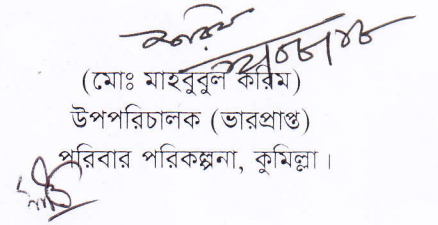 (মোঃ মাহবুবুল করিম)
উপপরিচালক (ভারপ্রাপ্ত)
পরিবার পরিকল্পনা, কুমিল্লা।